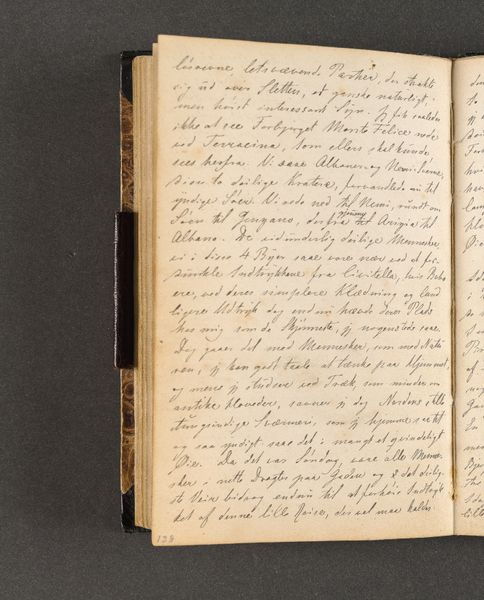 letsvævende Partier, der strakte
sig ud over Sletten, et ganske naturligt,
men høist interessant Syn. Jeg fik saaledes
ikke at see Forbjerget Monte Felice nede
ved Terracina, som ellers skal kunde
sees herfra. Vi saae Albaner- og Nemi-Søerne,
disse to deilige Kratere, forvandlede nu til
yndige Søer. Vi rede ned til Nemi, rundt om
Søen til Genzano, derfra gjennem Ariccia til
Albano. De vidunderlig deilige Mennesker,
vi i disse 4 Byer saae vare nær ved at for-
dunkle Indtrykkene fra Civitella, hvis Bebo
ere, ved deres simplere Klædning og land
ligere Udtryk dog endnu hævde deres Plads
hos mig som de skjønneste, jeg nogensteds saae.
Dog gaaer det med Mennesker, som med Natu
ren; jeg kan godt taale at tænke paa Hjemmet,
og mens jeg studerer ved Træk, som minder om
antike Hoveder, savner jeg dog Nordens stille
dybsindige Sværmeri, som jeg hjemme seer det
og saa yndigt saae det i mangt et qvindeligt
Øie. Da det var Søndag, vare alle Menne-
sker i nette Dragter paa Gaden og det deilig-
ste Veir bidrog endnu til at forhøie Indtryk
ket af denne lille Reise, der vel maa kaldes
138